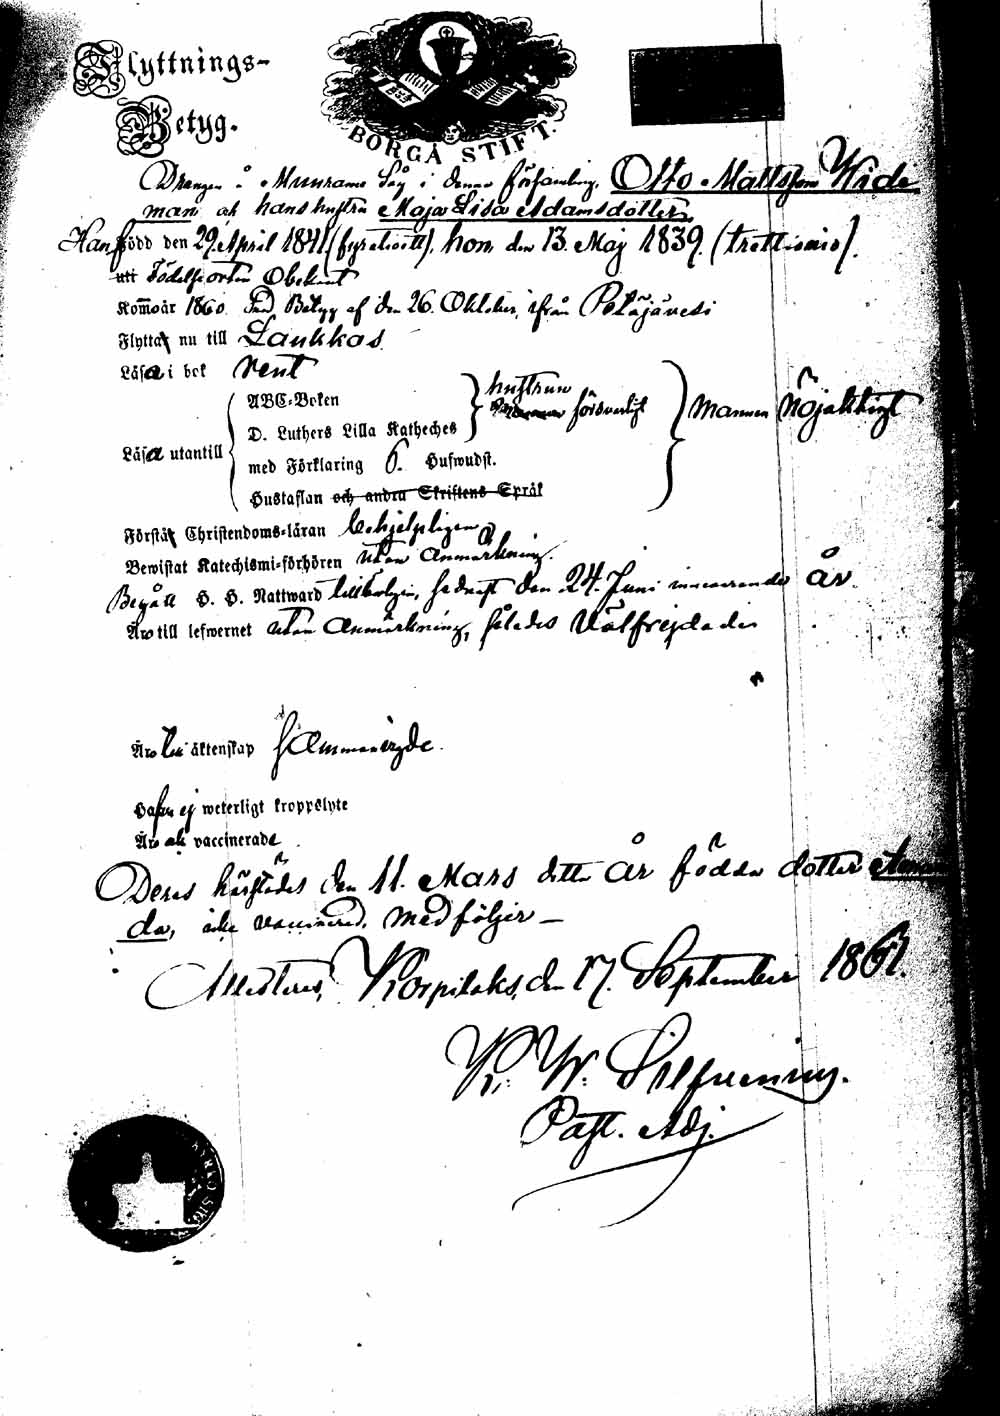 Flyttnings-
Betyg.
BORGÅ STIFT.
Drengen å Muurame Såg i denna församling, Otto Mattsson Wide
man och hans hustru Maja Lisa Adamsdotter,
Han född den 29. April 1841. (fyratioett), hon den 13. Maj 1839. (trettionio).
uti Födelseorten Obekant
Kommo år 1860. Med Betyg af den 26. Oktober, ifrån Petäjävesi
Flytta nu till Laukkas
Läsa i bok rent
ABC-Boken
hustrun försvarligt
mannen nöjaktigt
D. Luthers Lilla Katheches
Läsa utantill
med Förklaring 6. Hufwudst.
Hustaflan och andra Skriftens Språk
Förstå Christendoms-läran behjelpligen
Bewistat Katechismi-förhören utan Anmärkning.
Begått H. H. Nattward sednast den 24. Juni innevarande år.
Äro till lefwernet utan Anmärkning, således Välfrejdade
Äro till äktenskap sammanvigde.
Hafva ej weterligt kroppslyte
Äro ock vaccinerade
Deras härstädes den 11. Mars detta år födda dotter Aman
da, icke vaccinerad, medföljer —
Attesteras, Korpilaks, den 17. September 1861.
K. W. Silfvenius.
Past. Adj.